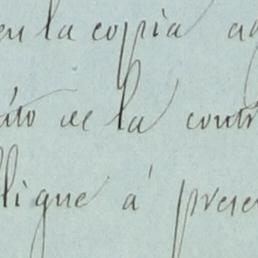 en la copia ag
áto de la contr
lligue á prese